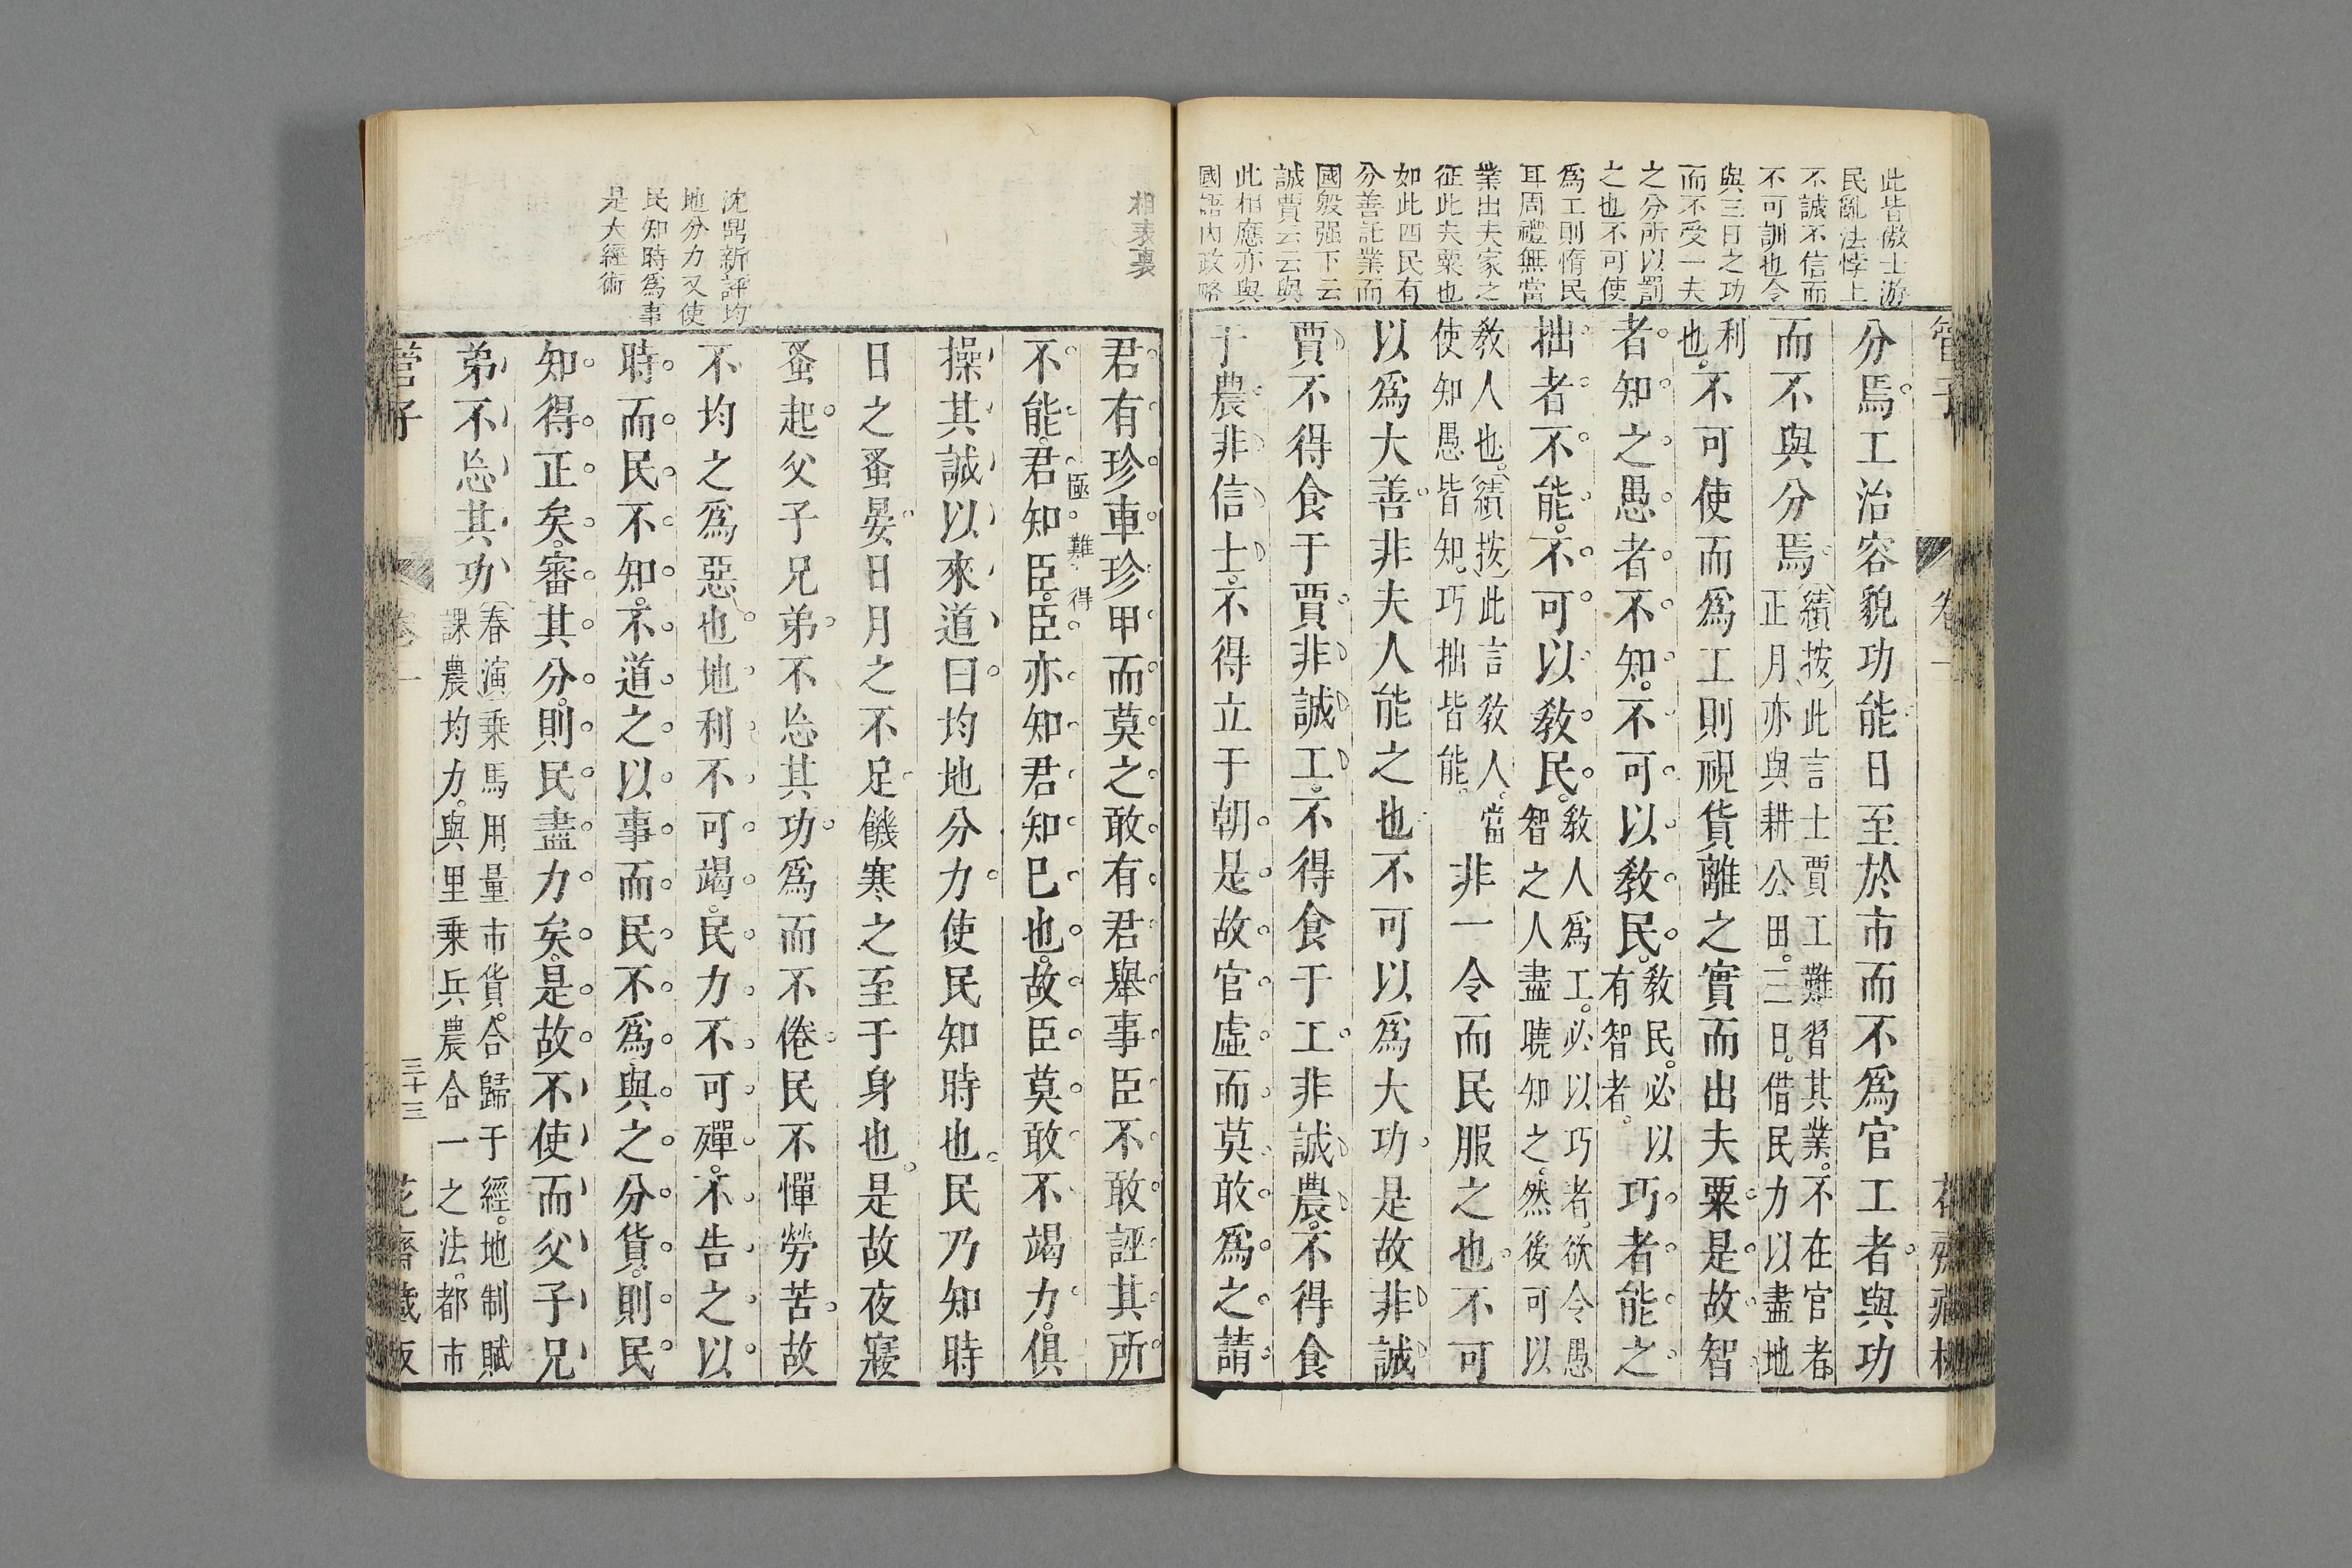 此皆傲士游
民亂法悖上
不誠不信而
不可訓也令
與三日之功
而不受一夫
之分所以罰
之也不可使
爲工則惰民
耳周禮無當
業出夫家之
征此夫粟也
如此四民有
分善託業而
國毀强下云
誠賈云云與
此相應亦與
國語內政略
管子
卷一
花齋藏板
分焉工治容貌功能日至於市而不爲官工者與功
而不與分焉
績按此言士賈工難習其業不在官者
正月亦與耕公田三日借民力以盡地
利
也
不可使而爲工則視貨離之實而出夫粟是故智
者知之愚者不知不可以教民
教民必以
有智者
巧者能之
拙者不能不可以教民
教人爲工必以巧者欲令愚
智之人盡曉知之然後可以
教人也績按此言教人當
使知愚皆知巧拙皆能
非一令而民服之也不可
以爲大善非夫人能之也不可以爲大功是故非誠
賈不得食于賈非誠工不得食于工非誠農不得食
于農非信士不得立于朝是故官虛而莫敢爲之請
相表裏
沈鼎新評均
地分力又使
民知時爲事
是大經術
君有珍車珍甲而莫之敢有君舉事臣不敢誣其所
不能君知臣臣亦知君知已也故臣莫敢不竭力俱
極難得
操其誠以來道曰均地分力使民知時也民乃知時
日之蚤晏日月之不足饑寒之至于身也是故夜寢
蚤起父子兄弟不忘其功爲而不倦民不憚勞苦故
不均之爲惡也地利不可竭民力不可殫不告之以
時而民不知不道之以事而民不爲與之分貨則民
知得正矣審其分則民盡力矣是故不使而父子兄
弟不忘其功
春演乘馬用量市貨合歸于經地制賦
課農均力與里乘兵農合一之法都市
管子
卷一
三十三
花齋藏板